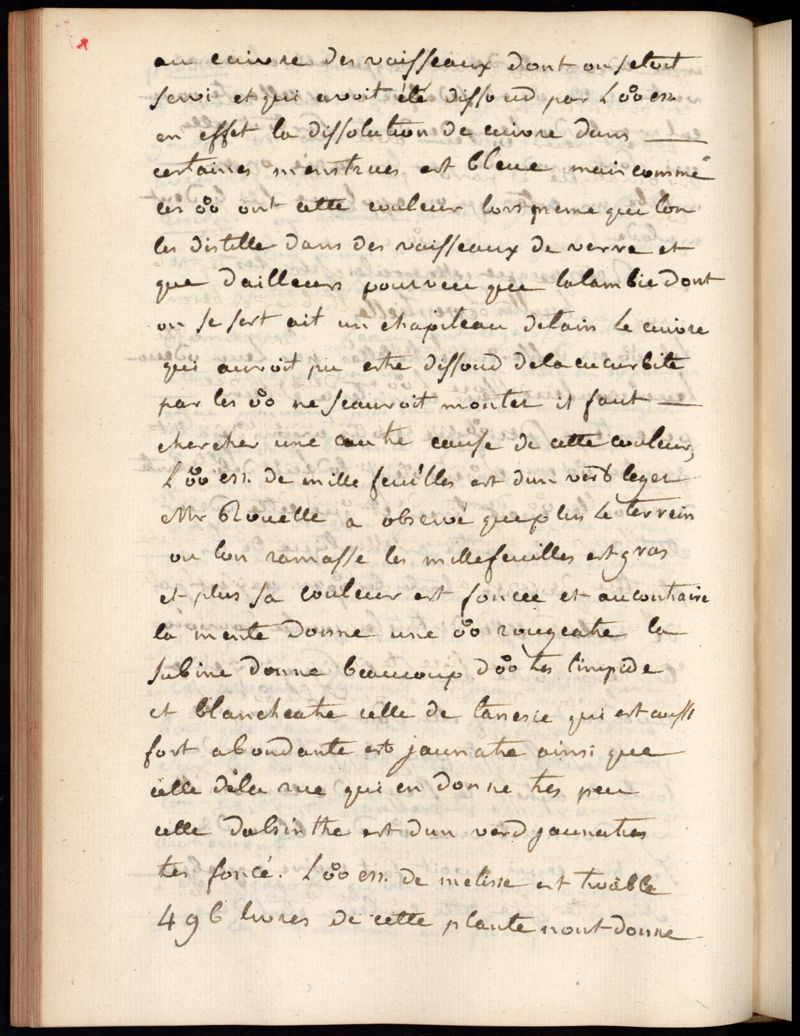 au cuivre des vaisseaux dont on setoit
servi et qui avoit été dissoud par L'o°o ess.
en effet la dissolution de cuivre dans —
certaines menstrues est bleue mais comme
ces o°o ont cette couleur lors meme que lon
les distille dans des vaisseaux de verre et
que dailleurs pourveu que lalambic dont
on se sert ait un chapiteau detain le cuivre
qui auroit pu estre dissoud dela cucurbite
par les o°o ne scauroit monter il faut —
chercher une autre cause de cette couleur,
L'o°o ess. de mille feuilles est dun verd leger
Mr Rouelle a observé que plus le terrein
ou lon ramasse les millefeuilles est gras
et plus sa couleur est foncee et aucontraire
la mente donne une o°o rougeatre la
sabine donne beaucoup d'o°o tres limpide
et blancheatre celle de tanesie qui est aussi
fort abondante est jaunatre ainsi que
celle dela rue qui en donne tres peu
celle dabsinthe est dun verd jaunatre
tres foncé. L'o°o ess. de melisse est
496 livres de cette plante nont donne